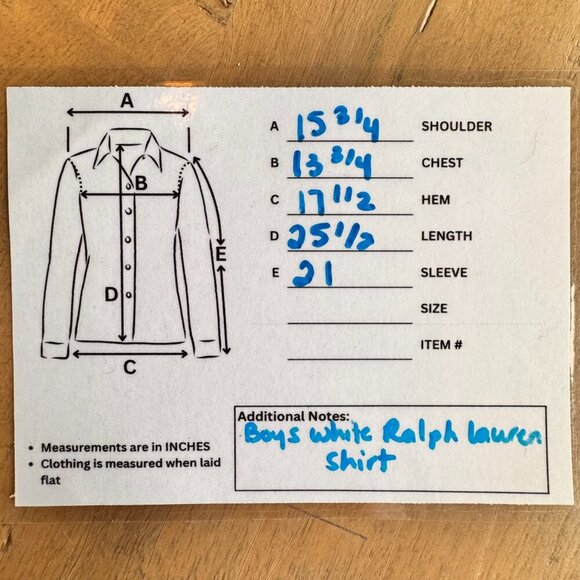 A
B
C
D
E
A 15 3/4 SHOULDER
B 13 3/4 CHEST
C 17 1/2 HEM
D 25 1/2 LENGTH
E 21 SLEEVE
SIZE
ITEM #
Additional Notes:
Boys white Ralph Lauren
shirt
• Measurements are in INCHES
• Clothing is measured when laid
flat